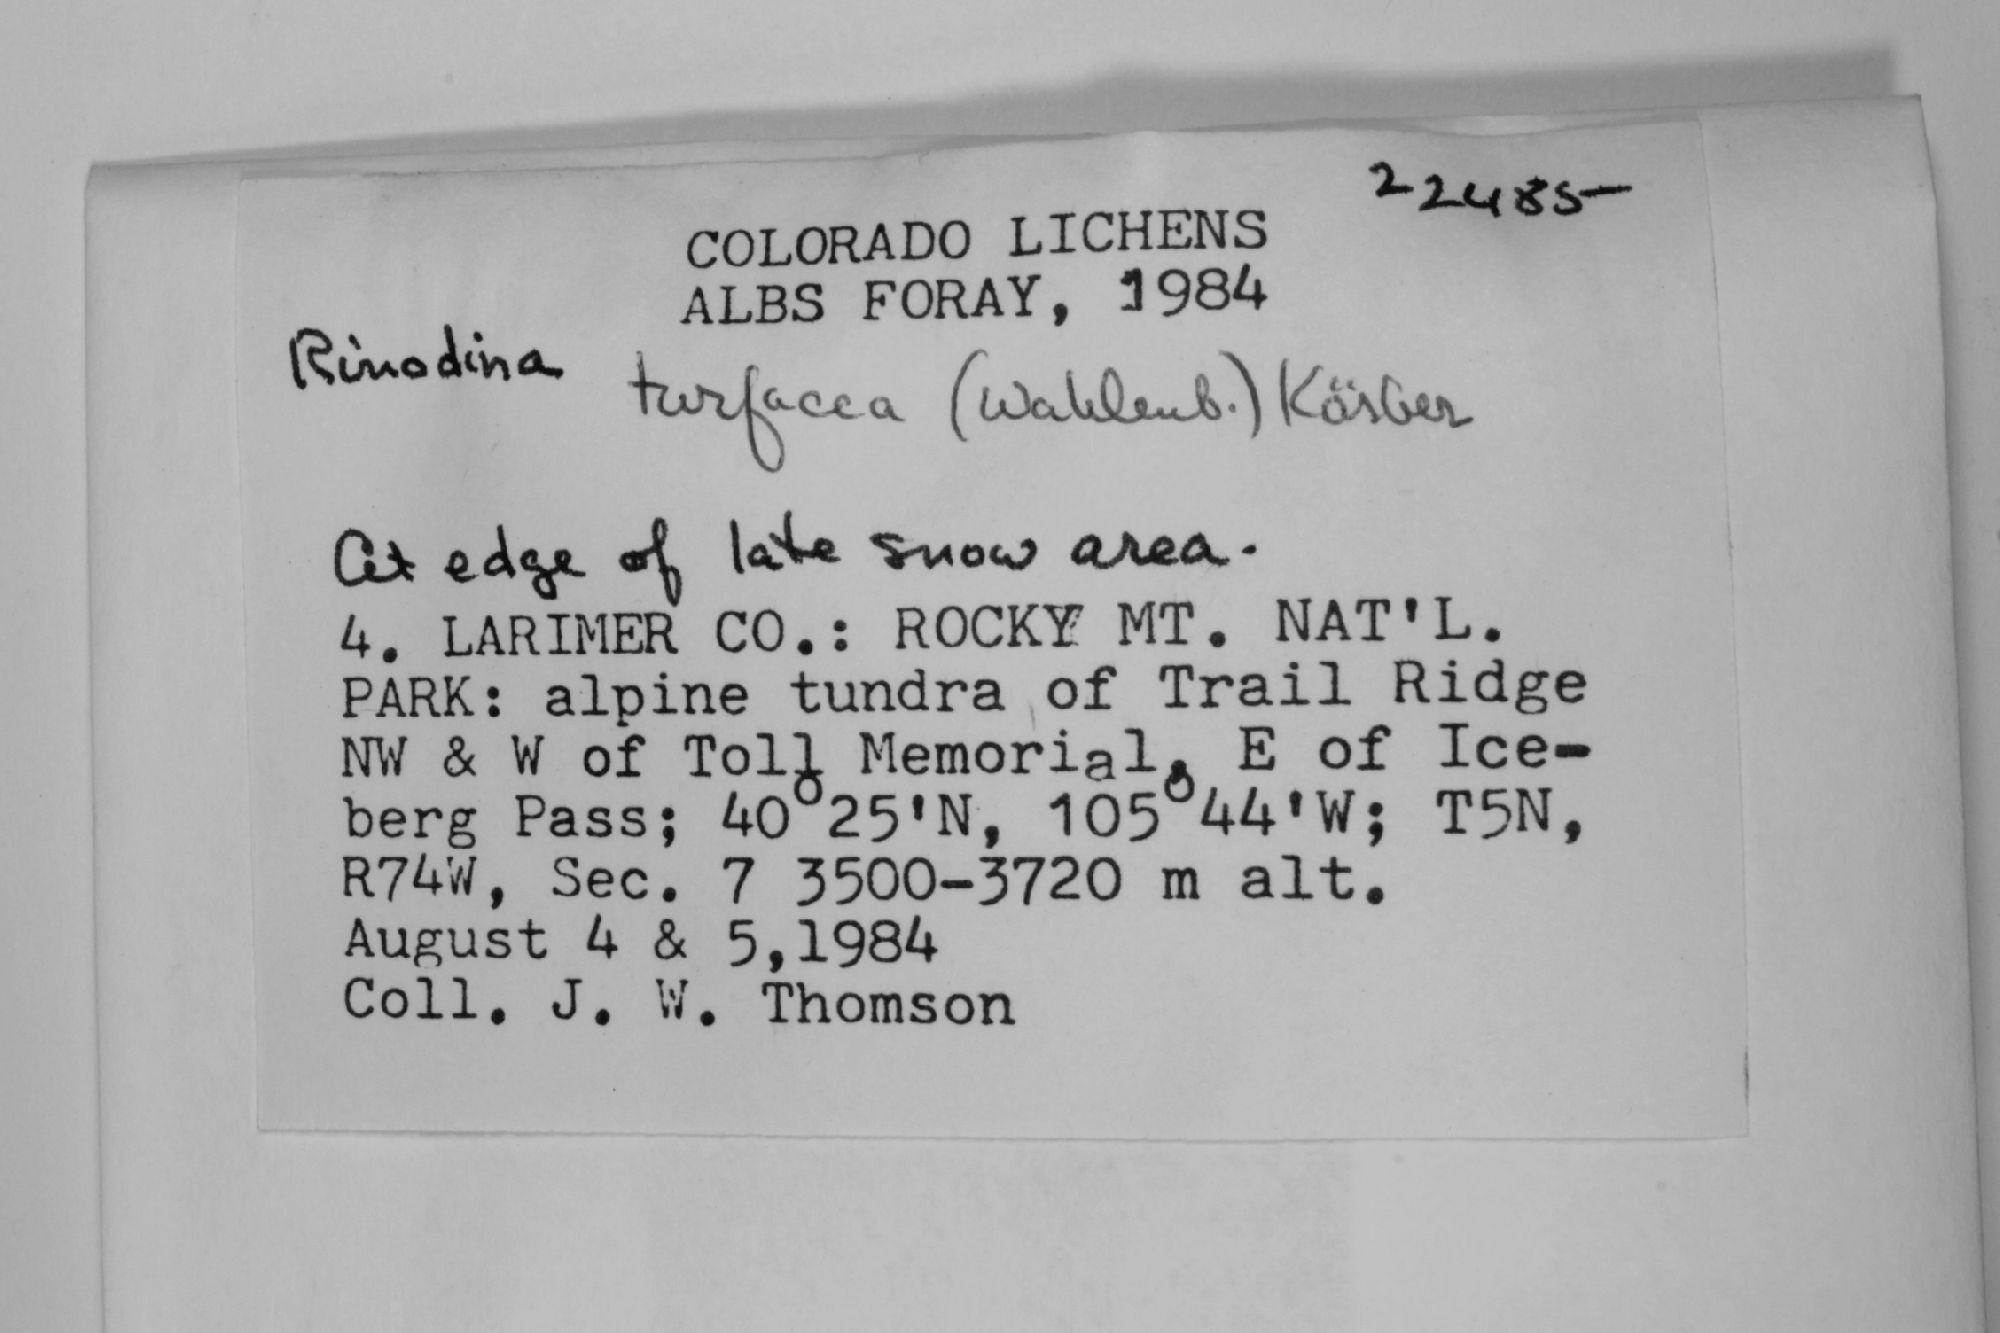 22485
COLORADO LICHENS
ALBS FORAY, 1984
Rinodina turfacea (Wahlenb.) Körber
At edge of late snow area.
4. LARIMER CO.: ROCKY MT. NAT'L.
PARK: alpine tundra of Trail Ridge
NW & W of Toll Memorial, E of Ice-
berg Pass; 40°25'N, 105°44'W; T5N,
R74W, Sec. 7 3500-3720 m alt.
August 4 & 5,1984
Coll. J. W. Thomson